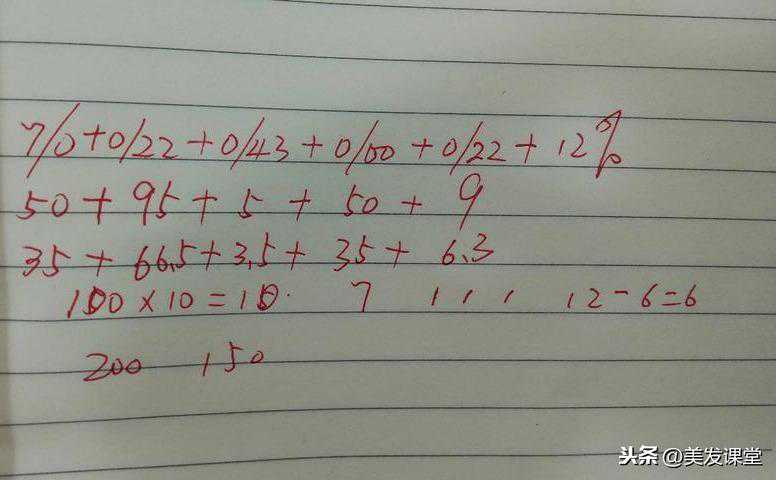 7/0+0/22+0/43+0/00+0/22+12%
50+95+5+50+9
35+66.5+3.5+35+6.3
100×10=10. 7 , , , 12-6=6
200 150
头条@美发课堂